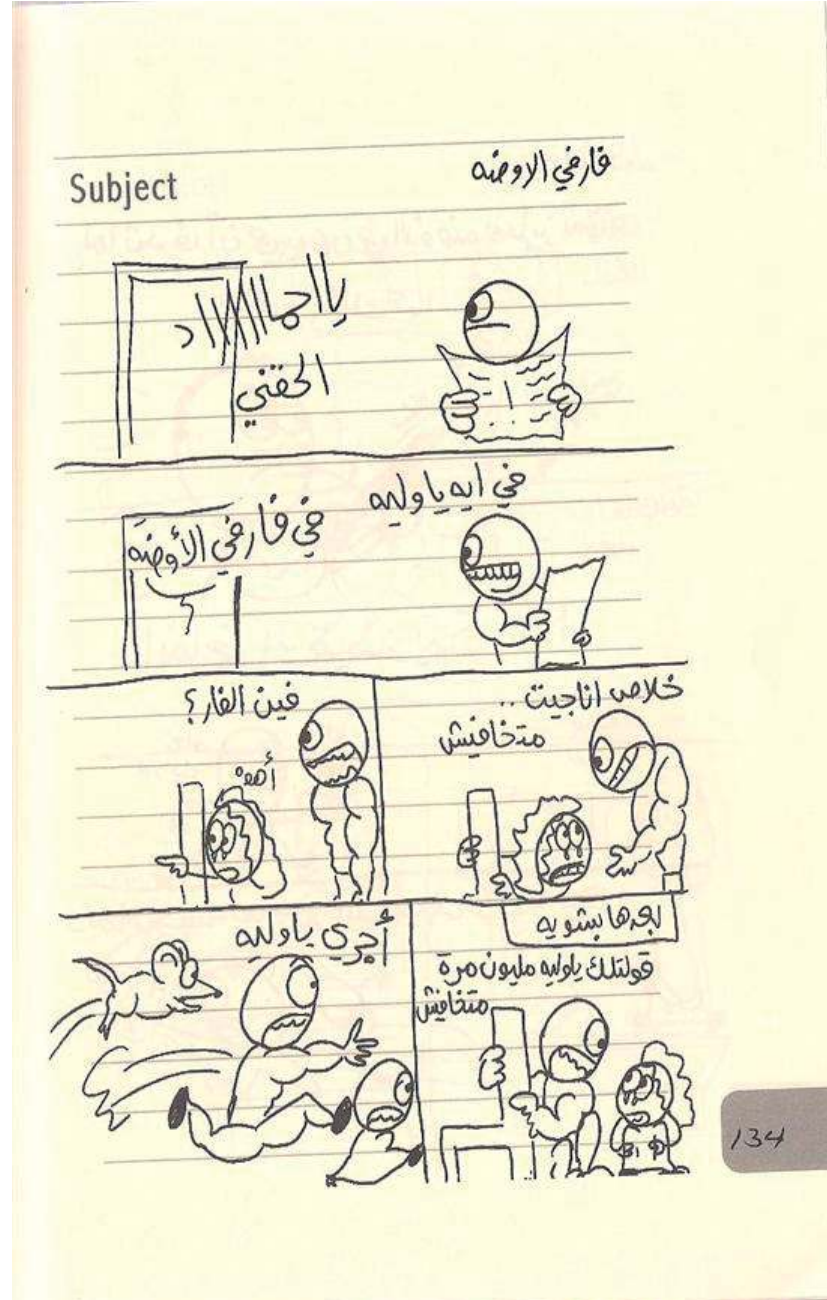 Subject
فار في الاوضه
يااجمااااااد
الحقني
في ايه يا وليه
في فار في الأوضه
خلاص انا جيت ..
متخافيش
فين الفار؟
أهه
بعدها بشويه
قولتلك ياوليه مليون مرة
متخافيش
أجري ياوليه
134